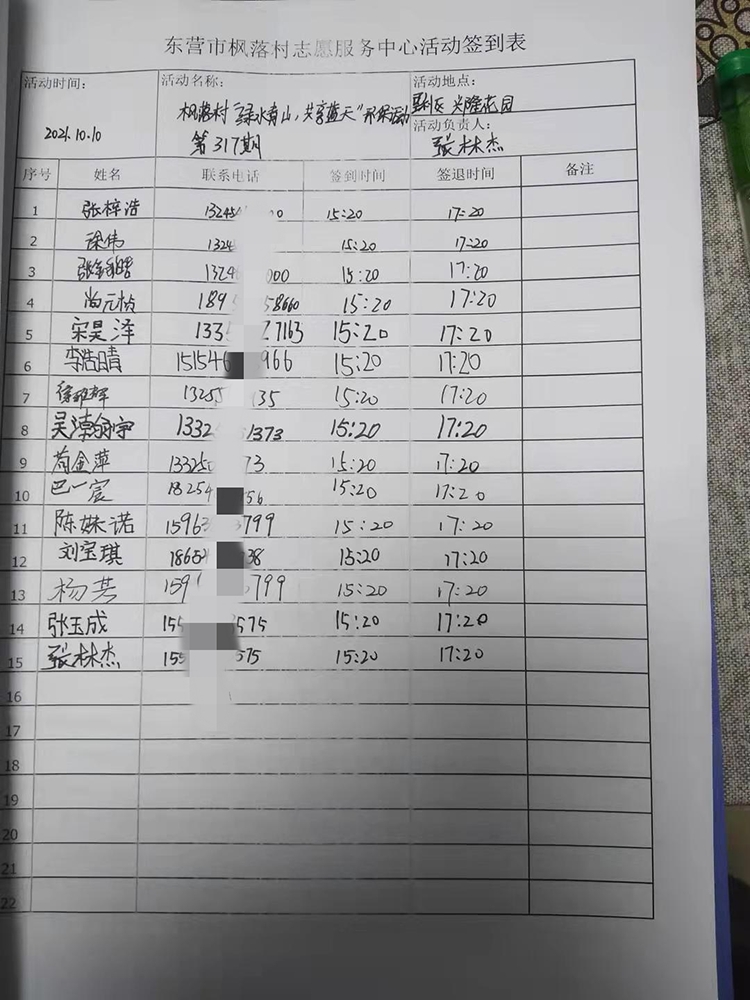 东营市枫落村志愿服务中心活动签到表
活动时间: 活动名称: 活动地点:
2021.10.10 枫落村“绿水青山,共享蓝天”环保活动 第317期 垦利区 兴隆花园
活动负责人: 张林杰
序号 姓名 联系电话 签到时间 签退时间 备注
1 张梓浩 13245 00 15:20 17:20
2 徐伟 1324 15:20 17:20
3 1324 000 15:20 17:20
4 尚元桢 189 58660 15:20 17:20
5 宋昊泽 133 27163 15:20 17:20
6 李浩晴 15154 966 15:20 17:20
7 13255 35 15:20 17:20
8 吴 1332 1373 15:20 17:20
9 荀金萍 13325 73 15:20 17:20
10 巴一宸 18254 56 15:20 17:20
11 陈姝诺 15963 3799 15:20 17:20
12 刘宝琪 1865 38 15:20 17:20
13 杨芸 159 3799 15:20 17:20
14 张玉成 155 3575 15:20 17:20
15 张林杰 155 575 15:20 17:20
16
17
18
19
20
21
22